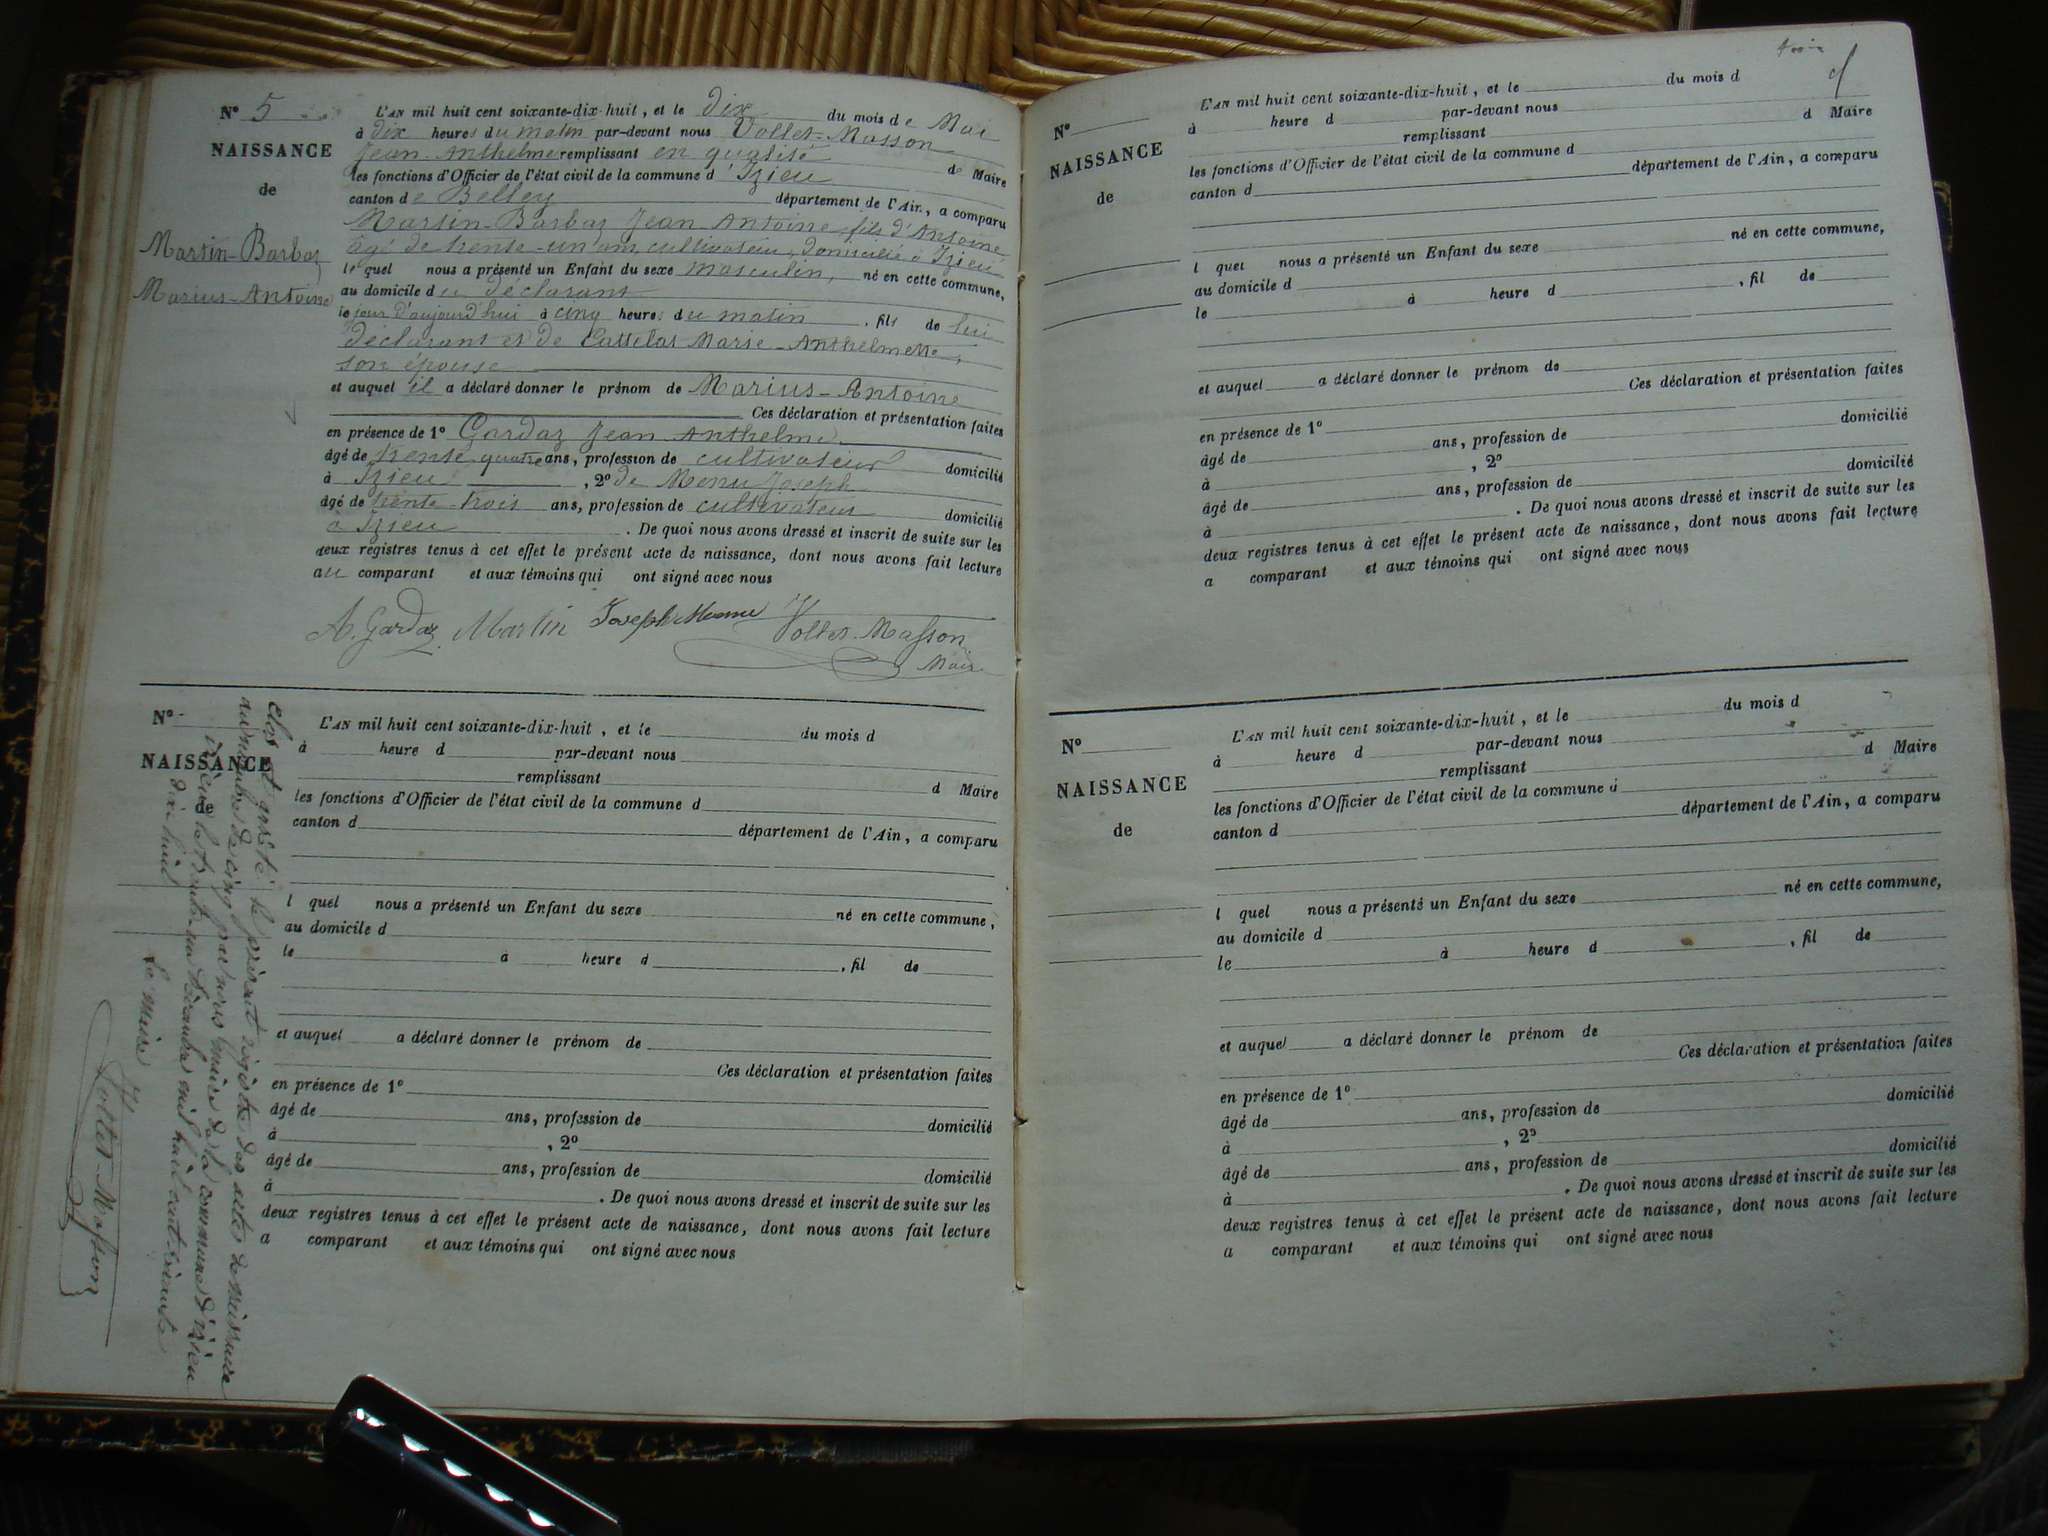 N° 5
NAISSANCE
de
Martin-Barbaz
Marius-Antoine
L'AN mil huit cent soixante-dix-huit, et le dix du mois de Mai
à dix heures du matin par-devant nous Vollet-Masson
Jean-Anthelme remplissant en qualité de Maire
les fonctions d'Officier de l'état civil de la commune d'Izieu
canton de Belley département de l'Ain, a comparu
Martin-Barbaz Jean Antoine, fils d'Antoine
âgé de trente-un ans, cultivateur, domicilié à Izieu
lequel nous a présenté un Enfant du sexe masculin, né en cette commune,
au domicile du déclarant
le jour d'aujourd'hui à cinq heures du matin, fils de lui
déclarant et de Cattelat Marie-Anthelmette,
son épouse
et auquel il a déclaré donner le prénom de Marius-Antoine
Ces déclaration et présentation faites
en présence de 1° Gardaz Jean Anthelme
âgé de trente-quatre ans, profession de cultivateur domicilié
à Izieu, 2° de Menu Joseph
âgé de trente-trois ans, profession de cultivateur domicilié
à Izieu. De quoi nous avons dressé et inscrit de suite sur les
deux registres tenus à cet effet le présent acte de naissance, dont nous avons fait lecture
au comparant et aux témoins qui ont signé avec nous
A. Gardaz Martin Joseph Menu Vollet-Masson
Maire
N°
NAISSANCE
de
L'AN mil huit cent soixante-dix-huit, et le du mois d
à heure d par-devant nous
remplissant d Maire
les fonctions d'Officier de l'état civil de la commune d
canton d département de l'Ain, a comparu
l quel nous a présenté un Enfant du sexe né en cette commune,
au domicile d
le à heure d, fil de
et auquel a déclaré donner le prénom de
Ces déclaration et présentation faites
en présence de 1°
âgé de ans, profession de domicilié
à, 2°
âgé de ans, profession de domicilié
à. De quoi nous avons dressé et inscrit de suite sur les
deux registres tenus à cet effet le présent acte de naissance, dont nous avons fait lecture
a comparant et aux témoins qui ont signé avec nous
Clos et arrêté le présent registre des actes de naissance
au nombre de cinq par nous maire de la commune d'Izieu
à Izieu le trente-un décembre mil huit cent soixante
dix huit
Le maire
Vollet-Masson
N°
NAISSANCE
de
L'AN mil huit cent soixante-dix-huit, et le du mois d
à heure d par-devant nous
remplissant d Maire
les fonctions d'Officier de l'état civil de la commune d
canton d département de l'Ain, a comparu
l quel nous a présenté un Enfant du sexe né en cette commune,
au domicile d
le à heure d, fil de
et auquel a déclaré donner le prénom de
Ces déclaration et présentation faites
en présence de 1°
âgé de ans, profession de domicilié
à, 2°
âgé de ans, profession de domicilié
à. De quoi nous avons dressé et inscrit de suite sur les
deux registres tenus à cet effet le présent acte de naissance, dont nous avons fait lecture
a comparant et aux témoins qui ont signé avec nous
N°
NAISSANCE
de
L'AN mil huit cent soixante-dix-huit, et le du mois d
à heure d par-devant nous
remplissant d Maire
les fonctions d'Officier de l'état civil de la commune d
canton d département de l'Ain, a comparu
l quel nous a présenté un Enfant du sexe né en cette commune,
au domicile d
le à heure d, fil de
et auquel a déclaré donner le prénom de
Ces déclaration et présentation faites
en présence de 1°
âgé de ans, profession de domicilié
à, 2°
âgé de ans, profession de domicilié
à. De quoi nous avons dressé et inscrit de suite sur les
deux registres tenus à cet effet le présent acte de naissance, dont nous avons fait lecture
a comparant et aux témoins qui ont signé avec nous